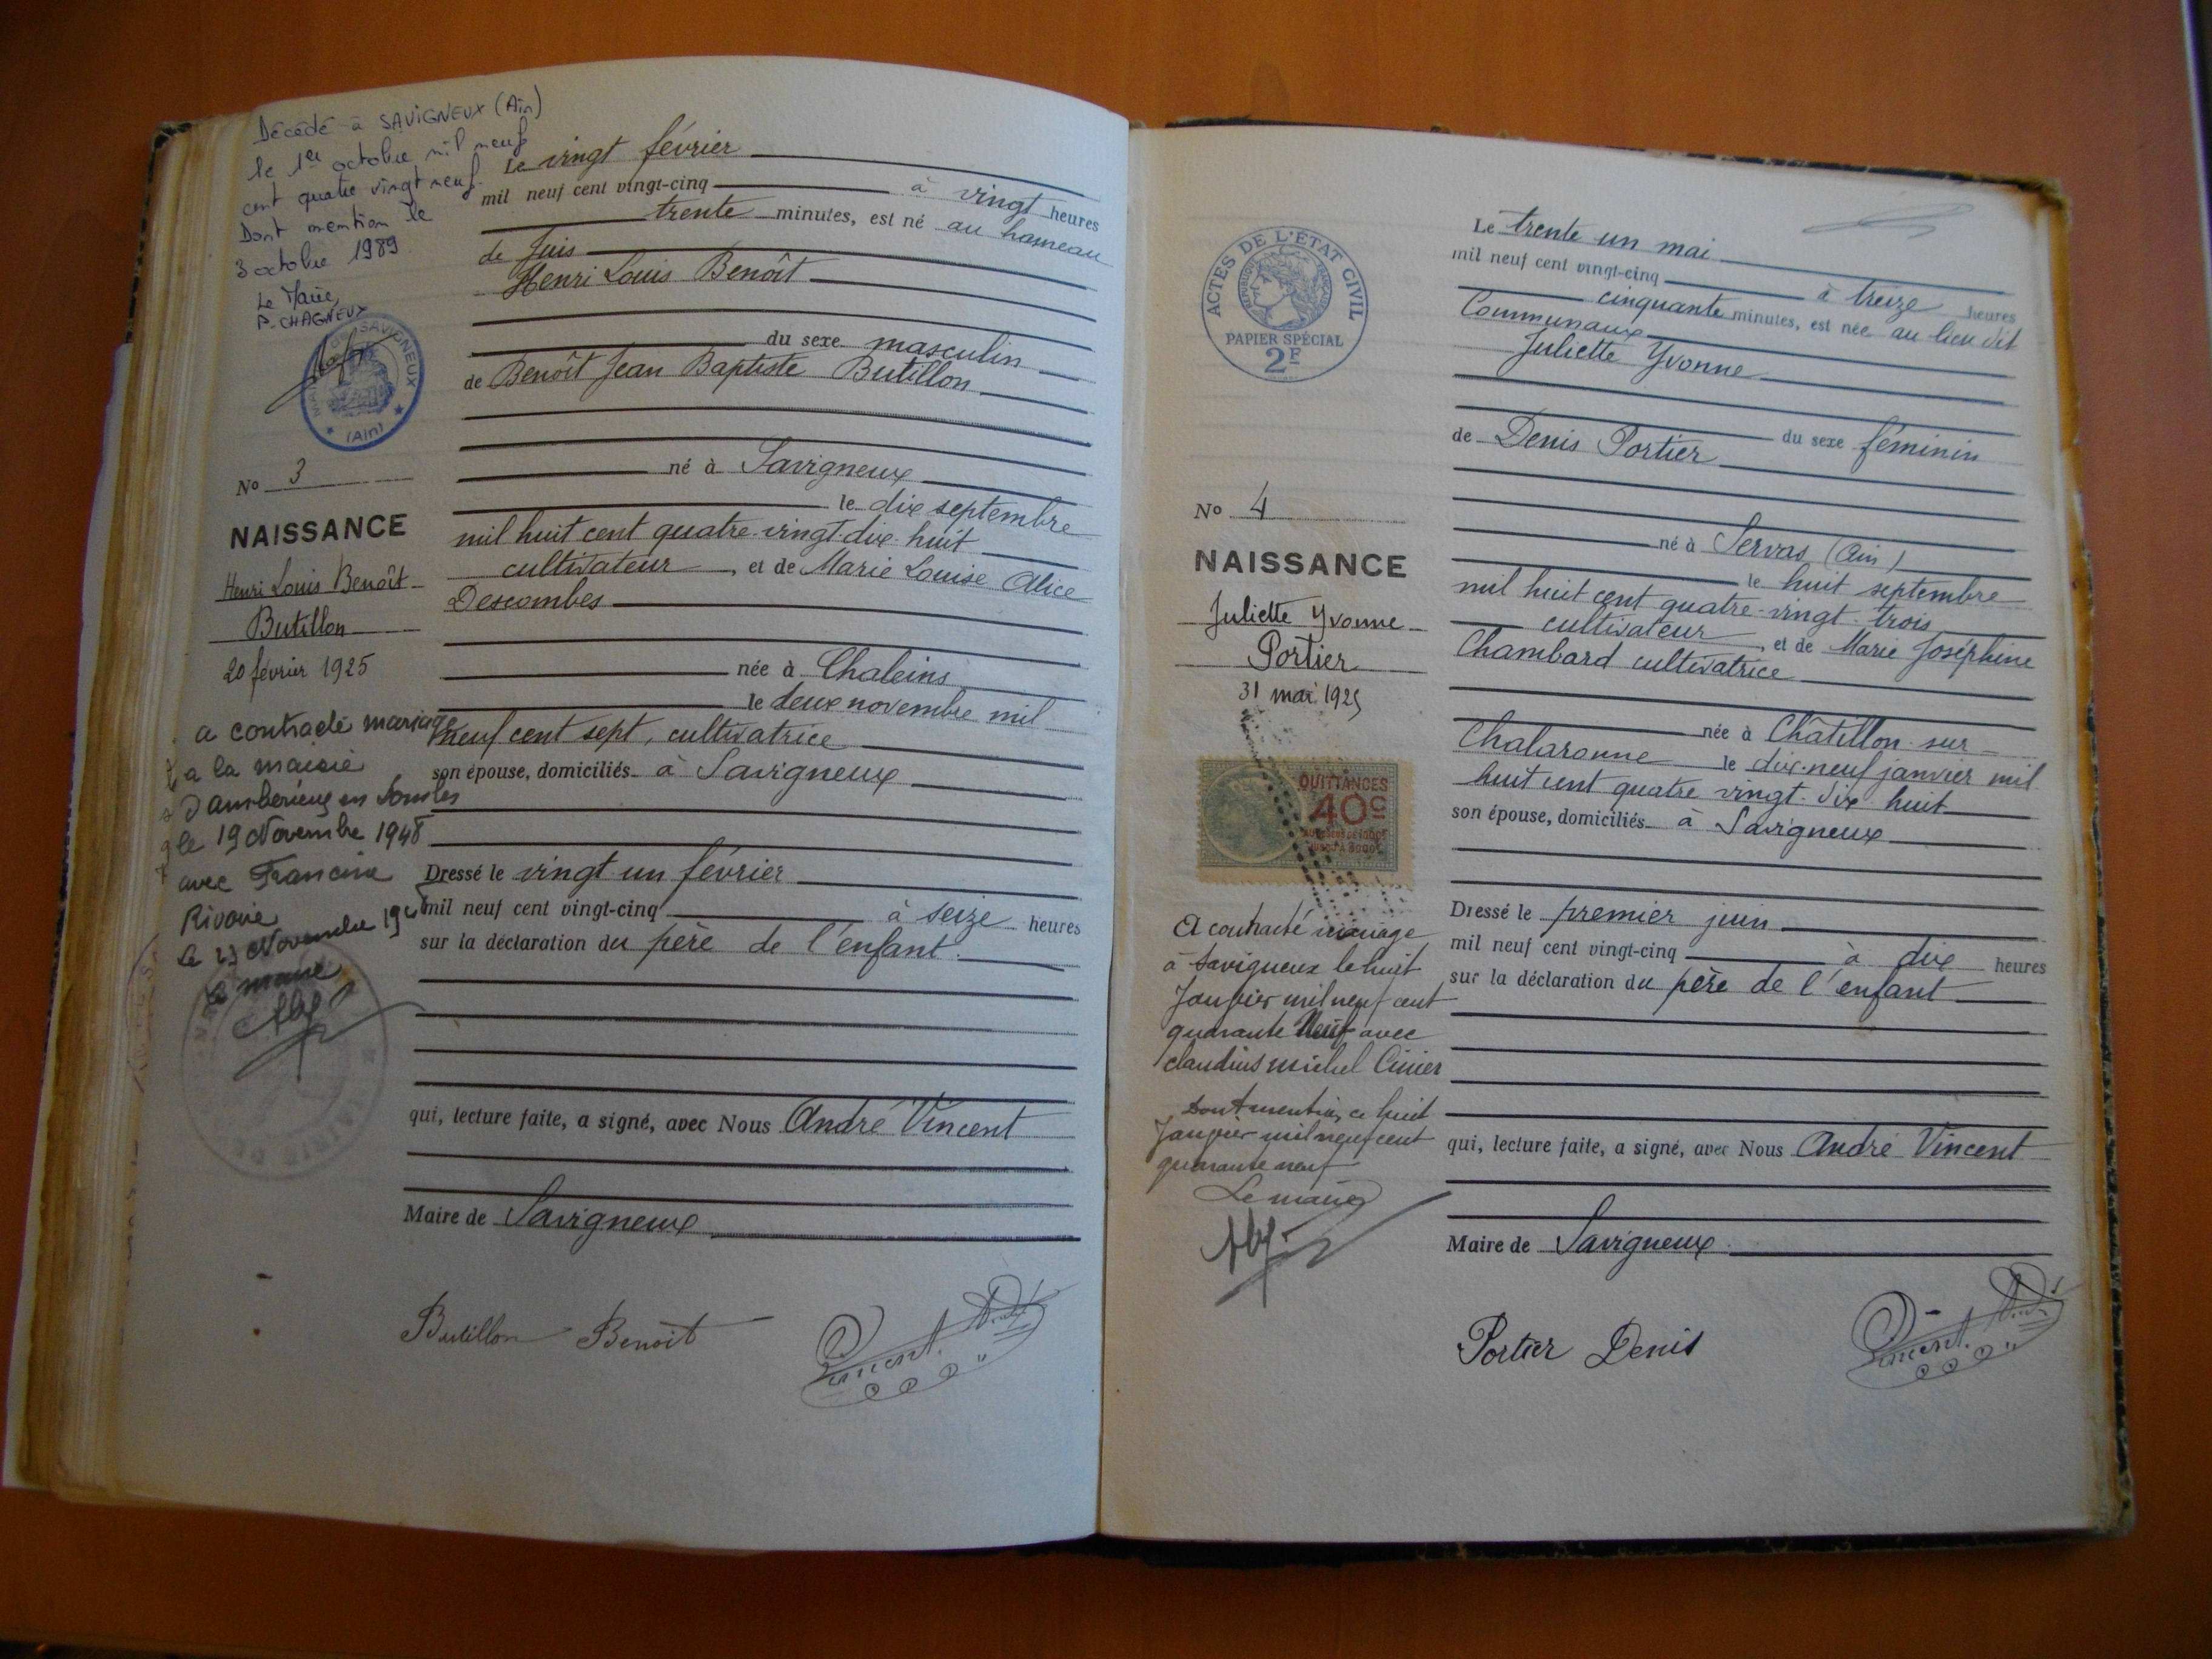 Décédé à SAVIGNEUX (Ain)
le 1er octobre mil neuf
cent quatre vingt neuf.
Dont mention le
3 octobre 1989
Le Maire,
P. CHAGNEUX
SAVIGNEUX
(Ain)
No 3
NAISSANCE
Henri Louis Benoît
Butillon
20 février 1925
a contracté mariage
a la mairie
d'ambérieux en Dombes
le 19 Novembre 1948
avec Francine
Rivoire
le 23 Novembre
le maire
Le vingt février
mil neuf cent vingt-cinq à vingt heures
trente minutes, est né au hameau
de Juis
Henri Louis Benoît
du sexe masculin
de Benoît Jean Baptiste Butillon
né à Savigneux
le dix septembre
mil huit cent quatre-vingt-dix-huit
cultivateur, et de Marie Louise Alice
Descombes
née à Chaleins
le deux novembre mil
neuf cent sept, cultivatrice
son épouse, domiciliés à Savigneux
Dressé le vingt-un février
mil neuf cent vingt-cinq à seize heures
sur la déclaration du père de l'enfant.
qui, lecture faite, a signé, avec Nous André Vincent
Maire de Savigneux
Butillon Benoît
Vincent
ACTES DE L'ÉTAT CIVIL
RÉPUBLIQUE FRANÇAISE
PAPIER SPÉCIAL
2F
No 4
NAISSANCE
Juliette Yvonne
Portier
31 mai 1925
QUITTANCES
40c
A contracté mariage
à Savigneux le huit
Janvier mil neuf cent
quarante Neuf avec
claudius michel Cinier
Dont mention ce huit
Janvier mil neuf cent
quarante neuf
Le maire
Le trente un mai
mil neuf cent vingt-cinq à treize heures
cinquante minutes, est née au lieu dit
Communaux
Juliette Yvonne
du sexe féminin
de Denis Portier
né à Servas (Ain)
le huit septembre
mil huit cent quatre-vingt-trois
cultivateur, et de Marie Joséphine
Chambard cultivatrice
née à Châtillon-sur-
Chalaronne le dix-neuf janvier mil
huit cent quatre vingt-dix huit
son épouse, domiciliés à Savigneux
Dressé le premier juin
mil neuf cent vingt-cinq à dix heures
sur la déclaration du père de l'enfant
qui, lecture faite, a signé, avec Nous André Vincent
Maire de Savigneux
Portier Denis
Vincent